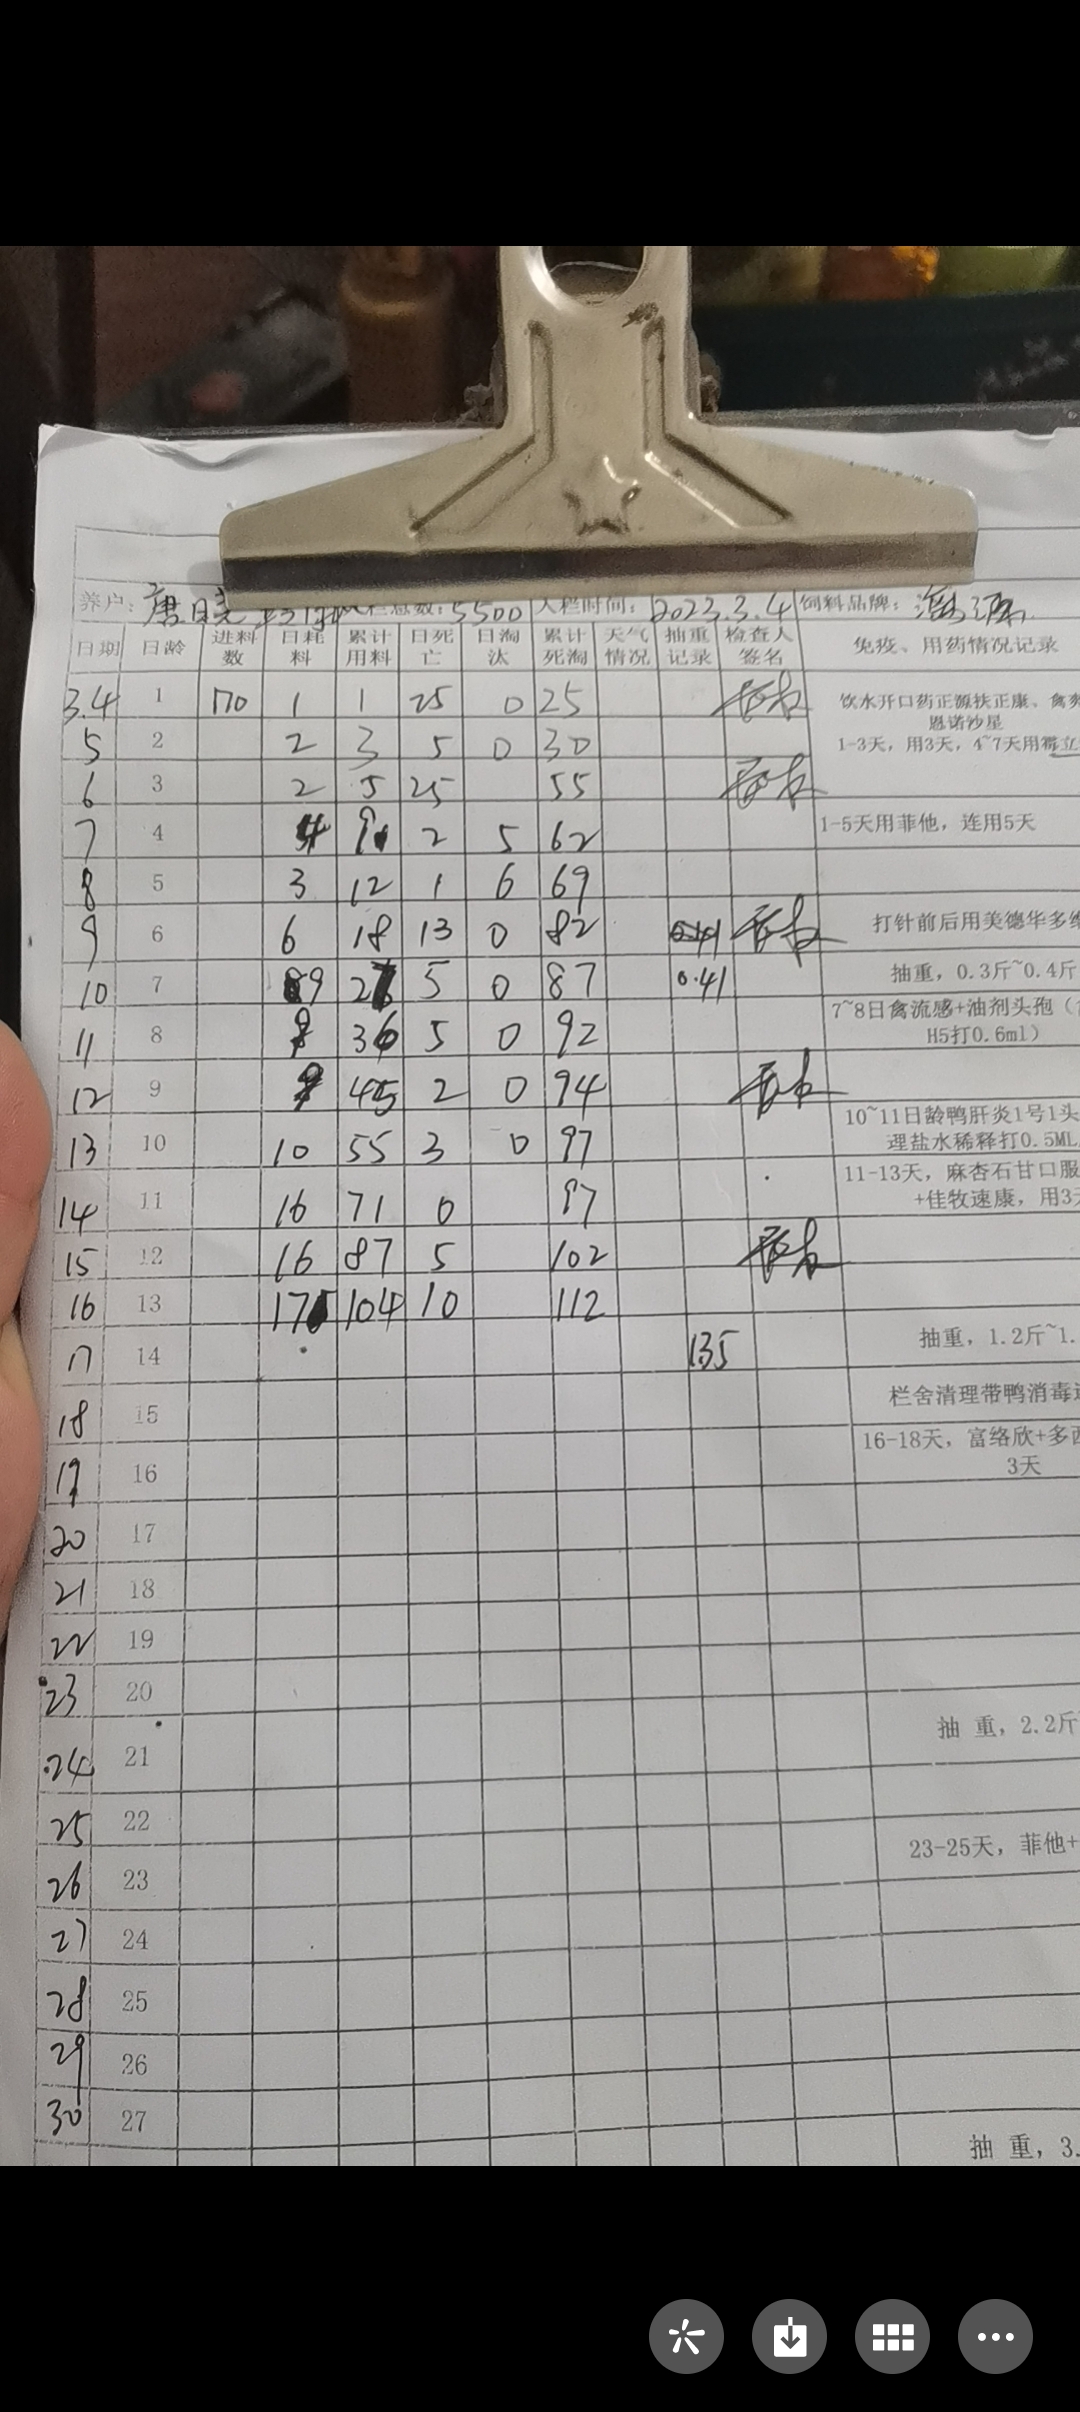 养户: 唐晓 栏总数: 5500 入栏时间: 2023.3.4 饲料品牌:
日期 日龄 进料数 日耗料 累计用料 日死亡 日淘汰 累计死淘 天气情况 抽重记录 检查人签名 免疫、用药情况记录
3.4 1 170 1 1 25 0 25 饮水开口药正源扶正康、禽
恩诺沙星
5 2 2 3 5 0 30 1-3天，用3天，4~7天用霉立
6 3 2 5 25 55
7 4 4 9 2 5 62 1-5天用菲他，连用5天
8 5 3 12 1 6 69
9 6 6 18 13 0 82 打针前后用美德华多维
10 7 9 27 5 0 87 0.41 抽重，0.3斤~0.4斤
11 8 36 5 0 92 7~8日禽流感+油剂头孢（
H5打0.6ml）
12 9 45 2 0 94
13 10 10 55 3 0 97 10~11日龄鸭肝炎1号1头
理盐水稀释打0.5ML
14 11 16 71 0 97 11-13天，麻杏石甘口服
+佳牧速康，用3天
15 12 16 87 5 102
16 13 17 104 10 112
17 14 1.35 抽重，1.2斤~1.
18 15 栏舍清理带鸭消毒
19 16 16-18天，富络欣+多西
3天
20 17
21 18
22 19
23 20
24 21 抽 重，2.2斤
25 22
26 23 23-25天，菲他+
27 24
28 25
29 26
30 27
抽 重，3.